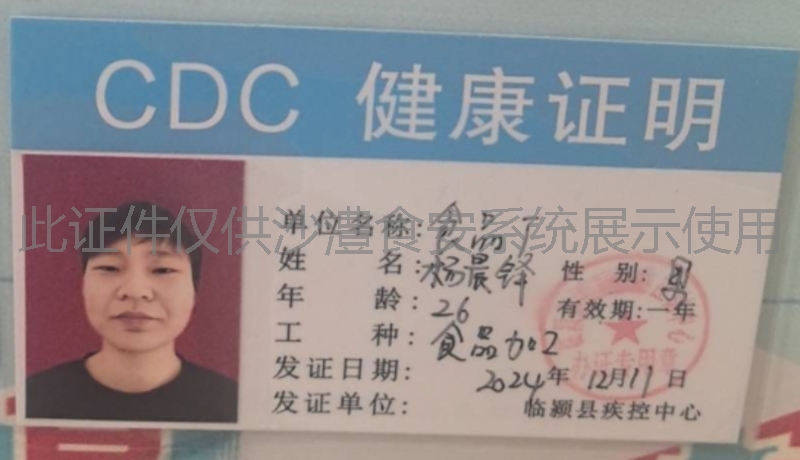 CDC 健康证明
此证件仅供沙澧食安系统展示使用
单位名称: 食品厂
姓 名: 杨晨锋 性 别: 男
年 龄: 26 有效期: 一年
工 种: 食品加工
发证日期: 2024年12月11日
发证单位: 临颍县疾控中心
办证专用章